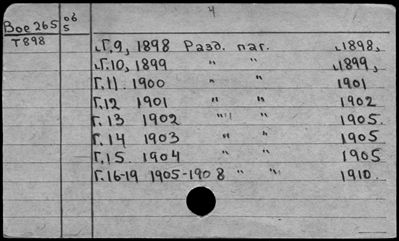 4
Вое 265 об 5
Т898
Г.9, 1898 Разд. паг. 1898,
Г.10, 1899 " " 1899,
Г.11. 1900 " " 1901
Г.12 1901 " " 1902
Г.13 1902 " " 1905.
Г.14 1903 " " 1905
Г.15. 1904 " " 1905
Г.16-19 1905-1908 " " 1910.